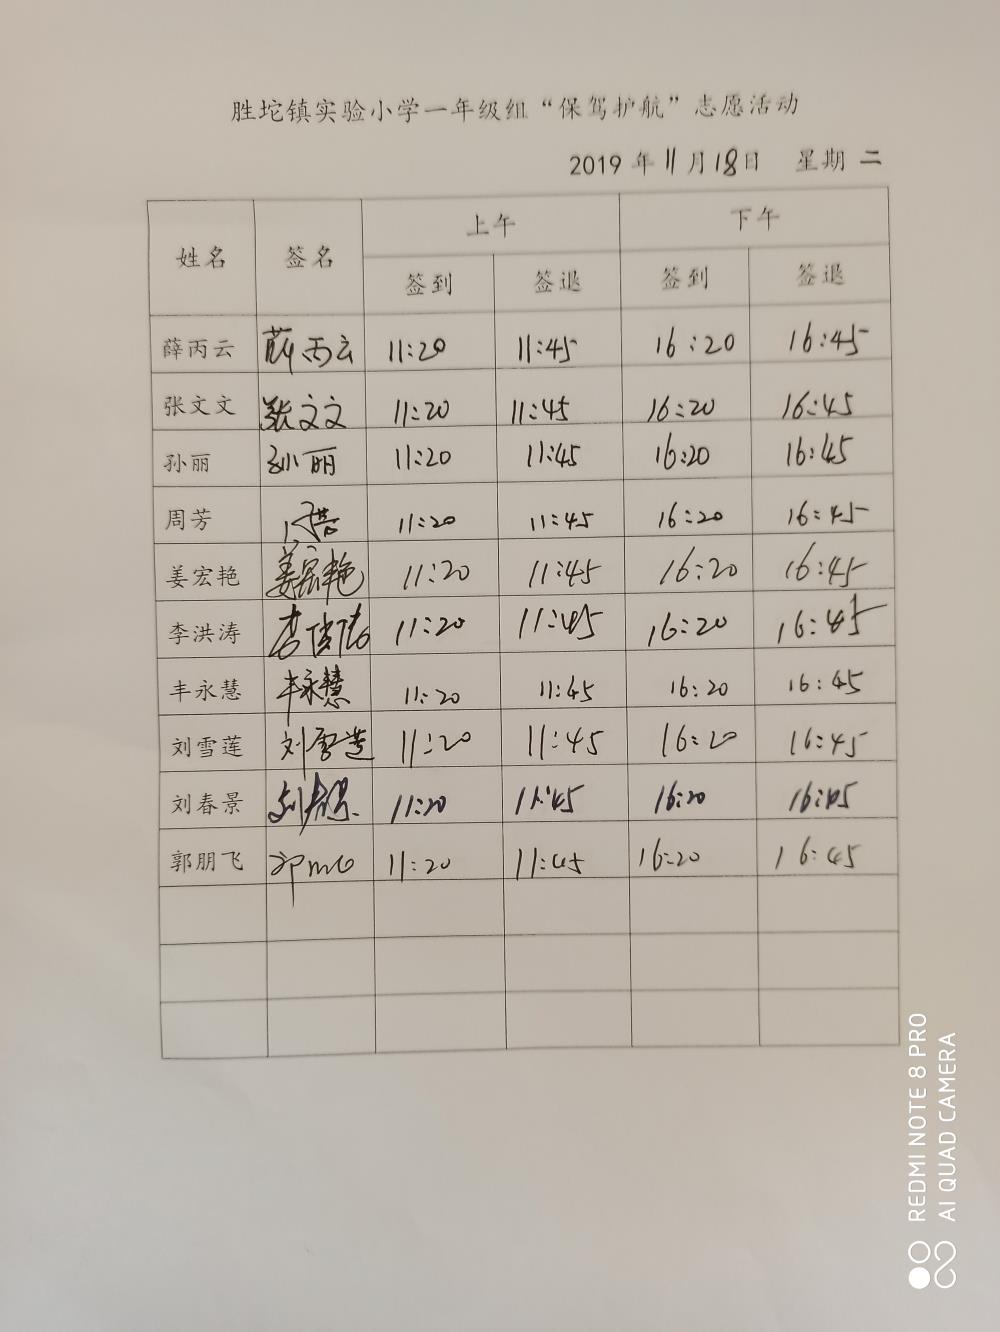 胜坨镇实验小学一年级组“保驾护航”志愿活动
2019 年 11 月 18 日 星期 二
姓名 签名 上午 下午
签到 签退 签到 签退
薛丙云 薛丙云 11:20 11:45 16:20 16:45
张文文 张文文 11:20 11:45 16:20 16:45
孙丽 孙丽 11:20 11:45 16:20 16:45
周芳 11:20 11:45 16:20 16:45
姜宏艳 姜宏艳 11:20 11:45 16:20 16:45
李洪涛 李洪涛 11:20 11:45 16:20 16:45
丰永慧 丰永慧 11:20 11:45 16:20 16:45
刘雪莲 刘雪莲 11:20 11:45 16:20 16:45
刘春景 刘春景 11:20 11:45 16:20 16:45
郭朋飞 11:20 11:45 16:20 16:45
REDMI NOTE 8 PRO
AI QUAD CAMERA